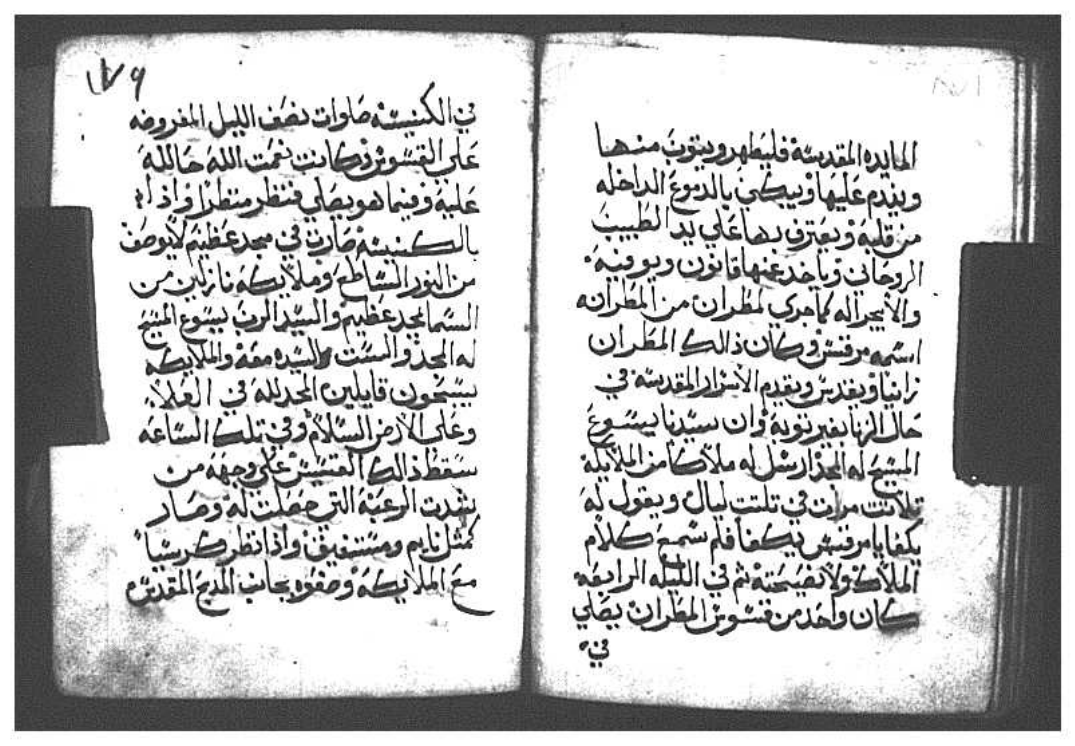 المايده المقدسة فليطهر ويتوب منها
ويندم عليها ويبكى بالدموع الداخله
من قلبه ويعترف بها على يد الطبيب
الروحانى وياخد عنها قانون ويوفيه
والا يجراله كما جرى لمطران من المطرانه
اسمه مرقس وكان ذالك المطران
زانيا ويقدس ويقدم الاسرار المقدسه فى
حال الزنا بغير توبه وان سيدنا يسوع
المسيح له المجد ارسل له ملاكا من الملايكة
تلاتت مرات فى تلتت ليال ويقول له
يكفا يا مرقس يكفا فلم سمع كلام
الملاك ولا نصيحته ثم فى الليله الرابعه
كان واحد من قسوس المطران يصلي
فى
١٧٩
فى الكنيسه صلوات نصف الليل المفروضه
على القسوس وكانت نعمت الله حالله
عليه وفيما هو يصلي فنظر منظرا واذا
بالكنيسه صارت في مجد عظيم لا يوصف
من النور الساطع وملايكه نازلين من
السما بمجد عظيم والسيد الرب يسوع المسيح
له المجد والست السيده معه والملايكه
يسبحون قايلين المجد لله فى العلا
وعلى الارض السلام وفى تلك الساعه
سقط ذالك القسيس على وجهه من
شدت الرعبه التى حصلت له وصار
كمثل نايم ومستفيق واذا نظر كرسيا
مع الملايكه وصفوه بجانب المدبح المقدس